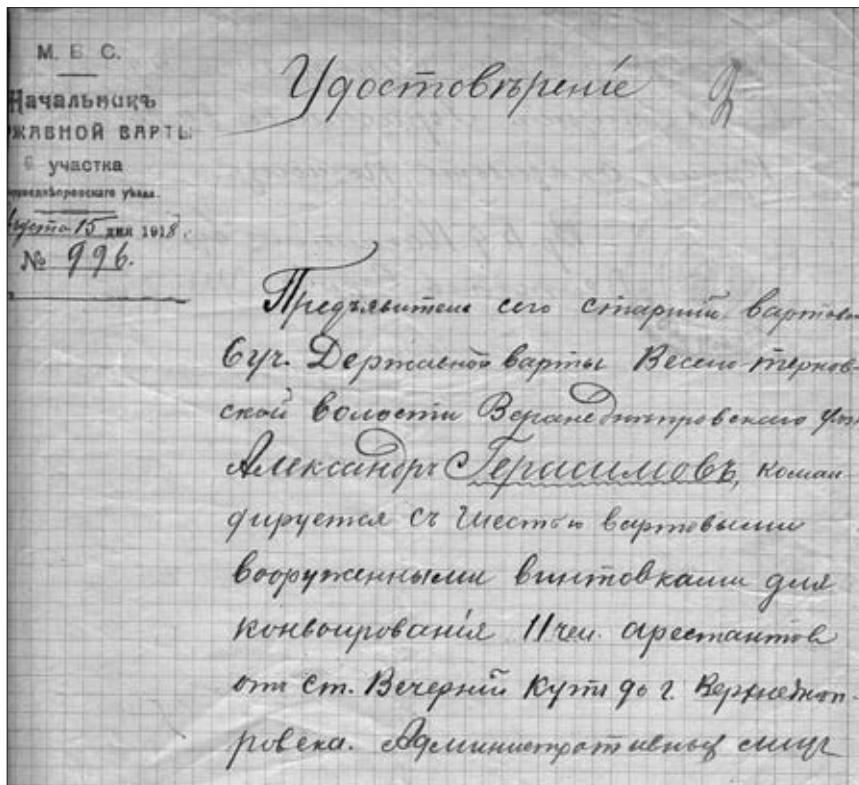 М. В. С.
Начальникъ
ЖАВНОЙ ВАРТЫ
6 участка
хнеднѣпровскаго уѣзда.
Августа 15 дня 1918 г.
№ 996.
Удостовѣреніе
Предъявитель сего старшій вартовой
6 уч. Державной варты Весело-терновской
ской волости Верхнеднѣпровскаго уѣзд
Александръ Герасимовъ, коман-
дируется съ шестью вартовыми
вооруженными винтовками для
конвоированія 11 чел. арестантов
от ст. Вечерній Кутъ до г. Верхнеднеп-
ровска. Административныхъ лицъ